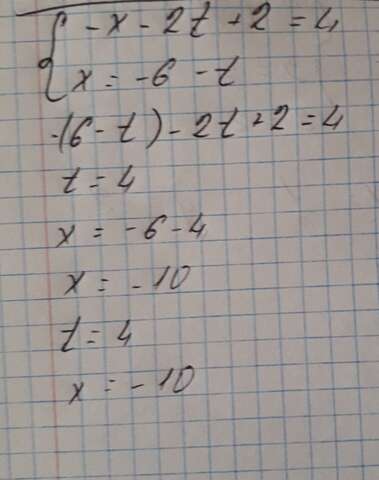 { -x - 2t + 2 = 4
x = -6 - t
-(6 - t) - 2t + 2 = 4
t = 4
x = -6 - 4
x = -10
t = 4
x = -10